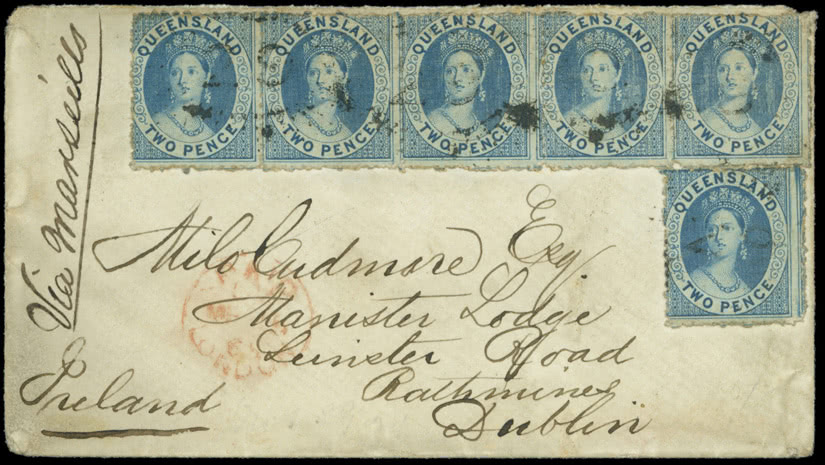 QUEENSLAND QUEENSLAND QUEENSLAND QUEENSLAND QUEENSLAND
TWO PENCE TWO PENCE TWO PENCE TWO PENCE TWO PENCE
QUEENSLAND
TWO PENCE
Via Marseills
Milo Cudmore Esq.
Manister Lodge
Leinster Road
Rathmines
Dublin
Ireland
LONDON